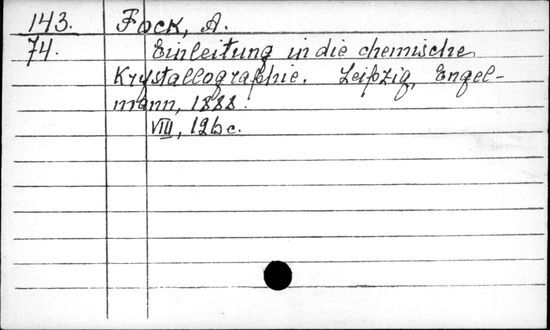 143. Fock, A.
74. Einleitung in die chemische
Krystallographie. Leipzig, Engel-
mann, 1888.
VIII, 126 c.